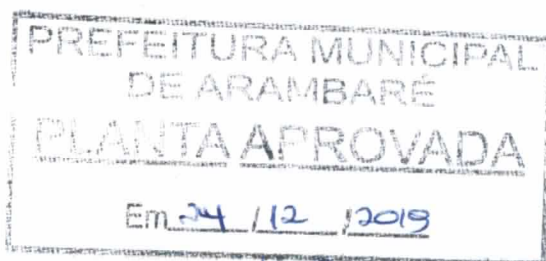 PREFEITURA MUNICIPAL
DE ARAMBARÉ
PLANTA APROVADA
Em 24 / 12 / 2019